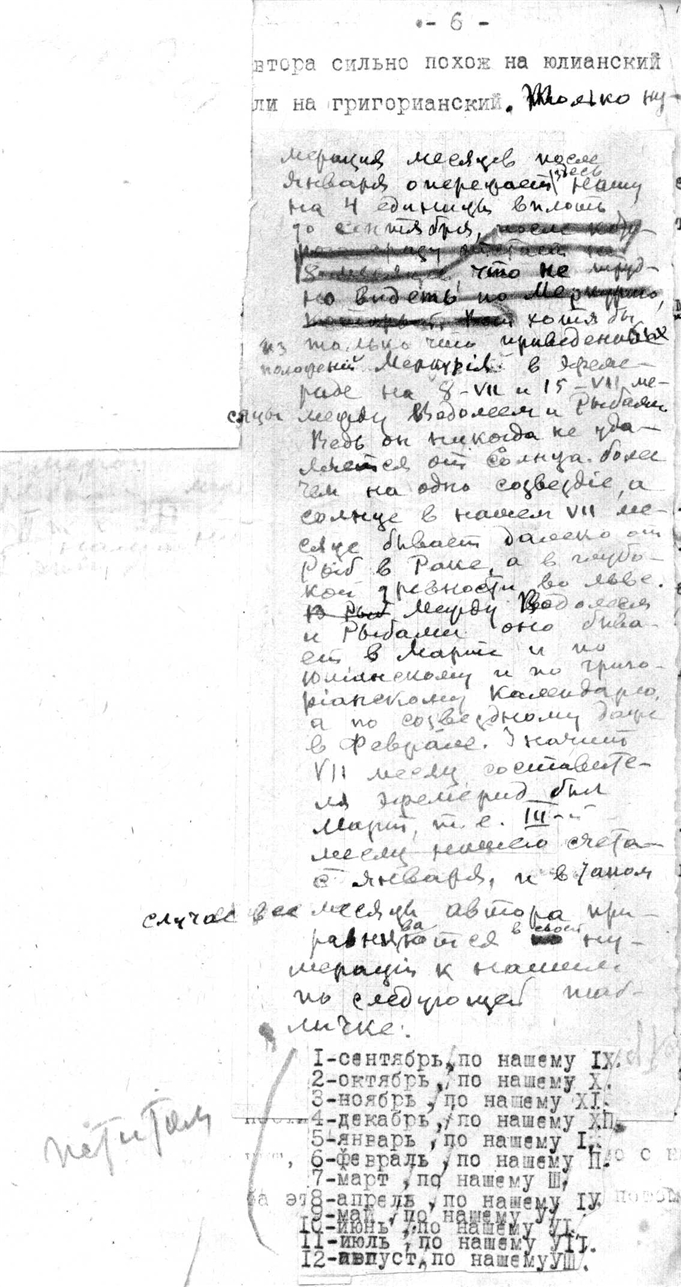 - 6 -
втора сильно похож на юлианский
ли на григорианский. Только ну-
мерация месяцев после
января опережает здесь нашу
на 4 единицы вплоть
до сентября, после
что не труд-
но видеть по Меркурию,
хотя бы
из только что приведенных
положений Меркурія в эфеме-
риде на 8-VII и 15-VII ме-
сяцы между Водолеем и Рыбами
Ведь он никогда не уда-
ляется от солнца более
чем на одно созвездіе, а
солнце в нашем VII ме-
сяце бывает далеко от
Рыб в Раке, а в глубо-
кой древности во льве.
в Рыб Между Водолеем
и Рыбами оно быва-
ет в Марте и по
юліанскому и по григо-
ріанскому календарю,
а по созвездному даже
в Феврале. Значит
VII месяц составите-
ля эфемерид был
Март, т.е. III-й
месяц нашего счета
с января, и в таком
случае все месяцы автора при-
равниваются в своей ну-
мераціи к нашим
по следующей таб-
личке:
1-сентябрь, по нашему IX.
2-октябрь, по нашему X.
3-ноябрь, по нашему XI.
4-декабрь, по нашему XII.
5-январь, по нашему I.
6-февраль, по нашему II.
7-март, по нашему III.
8-апрель, по нашему IV.
9-май, по нашему V.
10-июнь, по нашему VI.
11-июль, по нашему VII.
12-август, по нашему VIII.
петитом